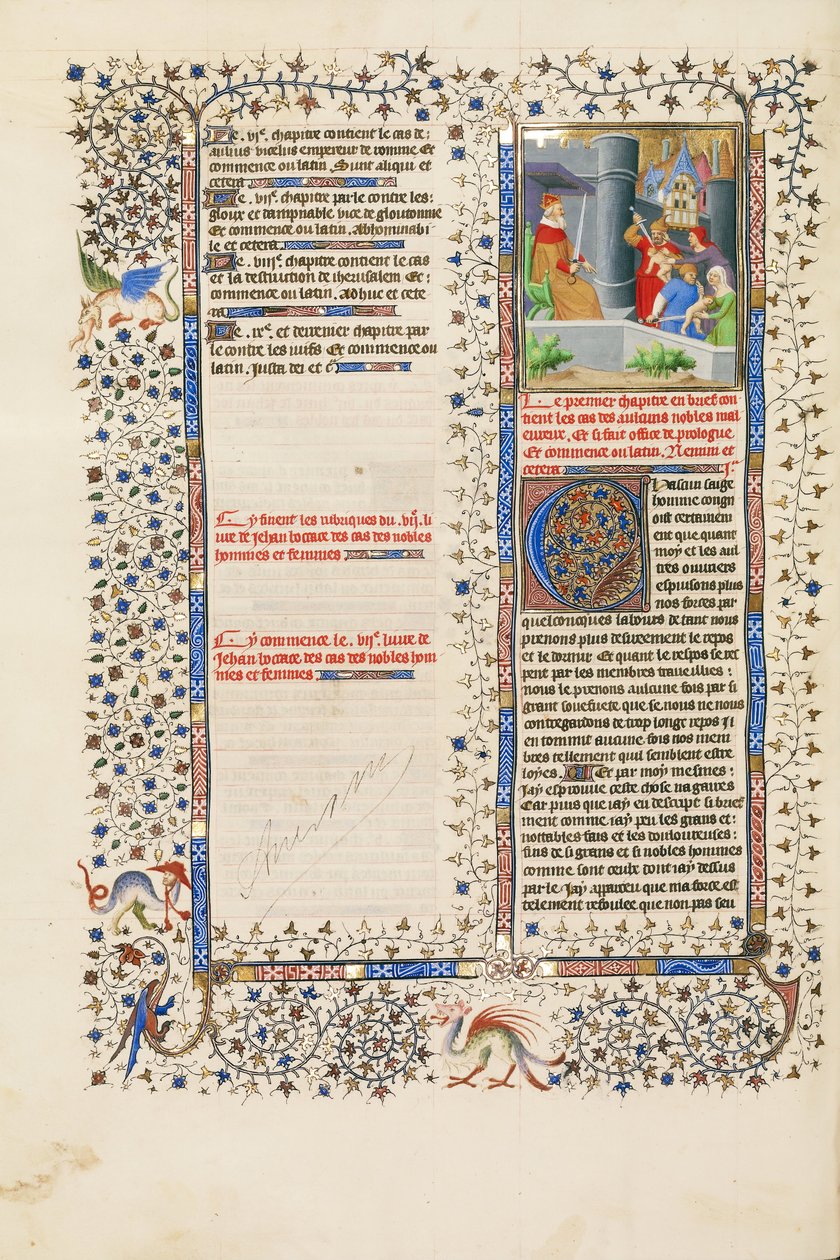 Le . vi͠e. chapitre contient le cas de :
aulius vicelius empereur de romme Et
commence ou latin . Sunt aliqui et
cetera
Le . vii͠e. chapitre parle contre les :
gloux et dampnable vice de gloutonnie
Et commence ou latin . Abhominabi
le et cetera .
Le . viii͠e. chapitre contient le cas
et la destruction de iherusalem Et :
commence ou latin . Adhuc et cete
ra
Le . ix͠e. et derrenier chapitre par
le contre les iuifs Et commence ou
latin . Justa dei et c͠
Cy finent les rubriques du . vii͠. li
ure de Jehan boccace des cas des nobles
hommes et femmes
Cy commence le . vii͠e liure de
Jehan boccace des cas des nobles hom
mes et femmes
Le premier chapitre en brief con
tient les cas des aulcuns nobles mal
eureux . Et si fait office de prologue .
Et commence ou latin . Nemini et
cetera . J͠a.
Chascun saige
homme congn
oist certainem
ent que quant
moy et les aul
tres ouuriers
espuisons plus
nos forces par
quelconques labours de tant nous
prenons plus desireement le repos
et le dormir Et quant le repos se ret
pent par les membres traueillies :
nous le prenons aulcune fois par si
grant souefuete que se nous ne nous
contregardons de trop longt repos il
en tommit aucune fois nos mem
bres tellement quil semblent estre
loyes . Et par moy mesmes :
Jay esprouue ceste chose nagaires
Car puis que iay en descript si brief
ment comme iay peu les grans et :
nottables fais et les douloureuses :
fins de si grans et si nobles hommes
comme sont ceulx dont iay dessus
parle Jay apparceu que ma force est
tellement refoulee que non pas seu